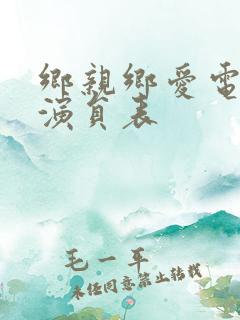 鄉親鄉愛電
演員表
毛一平
未经同意禁止转载